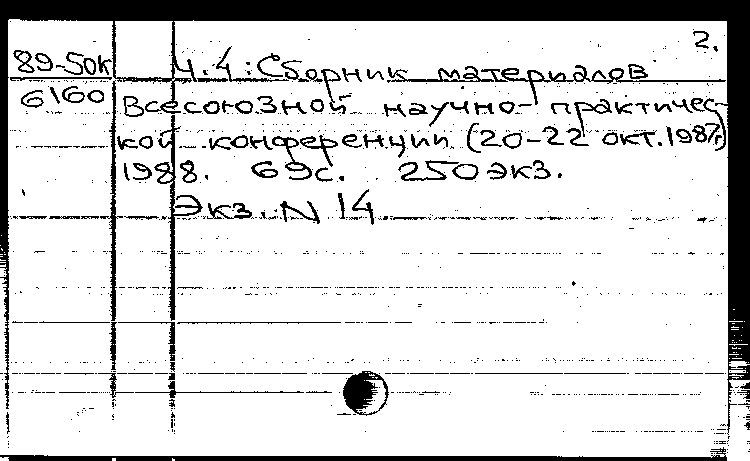 2.
89-50к Ч.4: Сборник материалов
6160 Всесоюзной научно-практичес-
кой конференции (20-22 окт. 1987г.)
1988. 69с. 250 экз.
Экз. N 14.